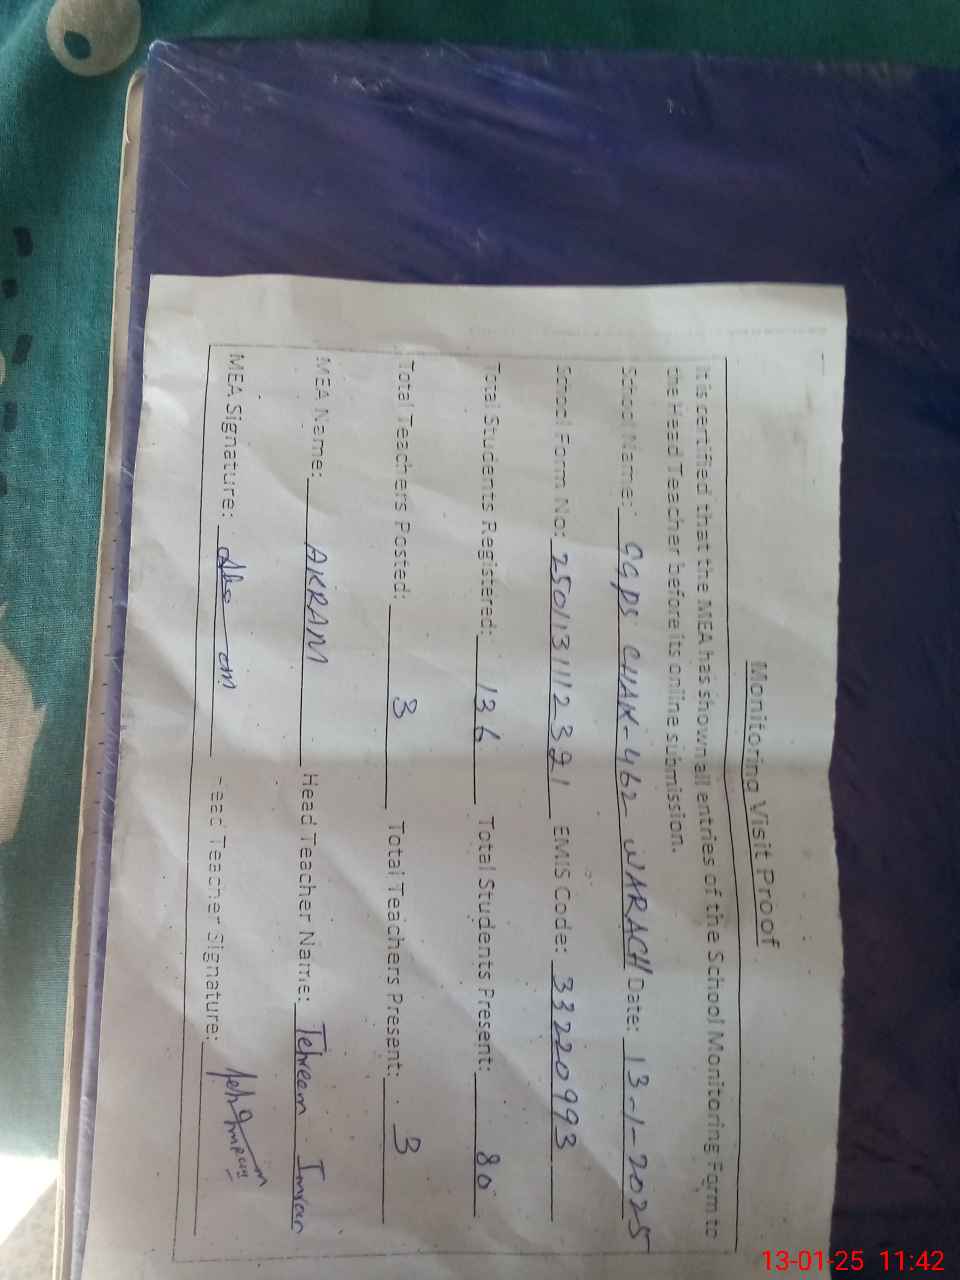 Monitoring Visit Proof
It is certified that the MEA has shown all entries of the School Monitoring Form to
the Head Teacher before its online submission.
School Name: GGPS CHAK-462 WARACH Date: 13-1-2025
School Form No: 2501131112391 EMIS Code: 33220993
Total Students Registered: 136 Total Students Present: 80
Total Teachers Posted: 3 Total Teachers Present: 3
MEA Name: AKRAM Head Teacher Name: Tehreem Imran
MEA Signature: Head Teacher Signature:
13-01-25 11:42